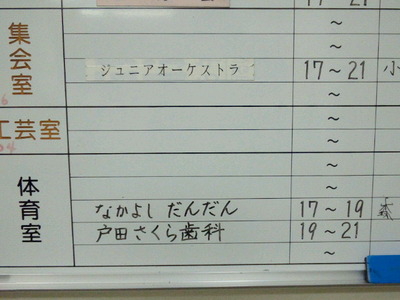 17～21
～
集会室
～
ジュニアオーケストラ 17～21 小
～
工芸室
～
～
～
体育室
～
なかよし だんだん 17～19 森
戸田さくら歯科 19～21
～